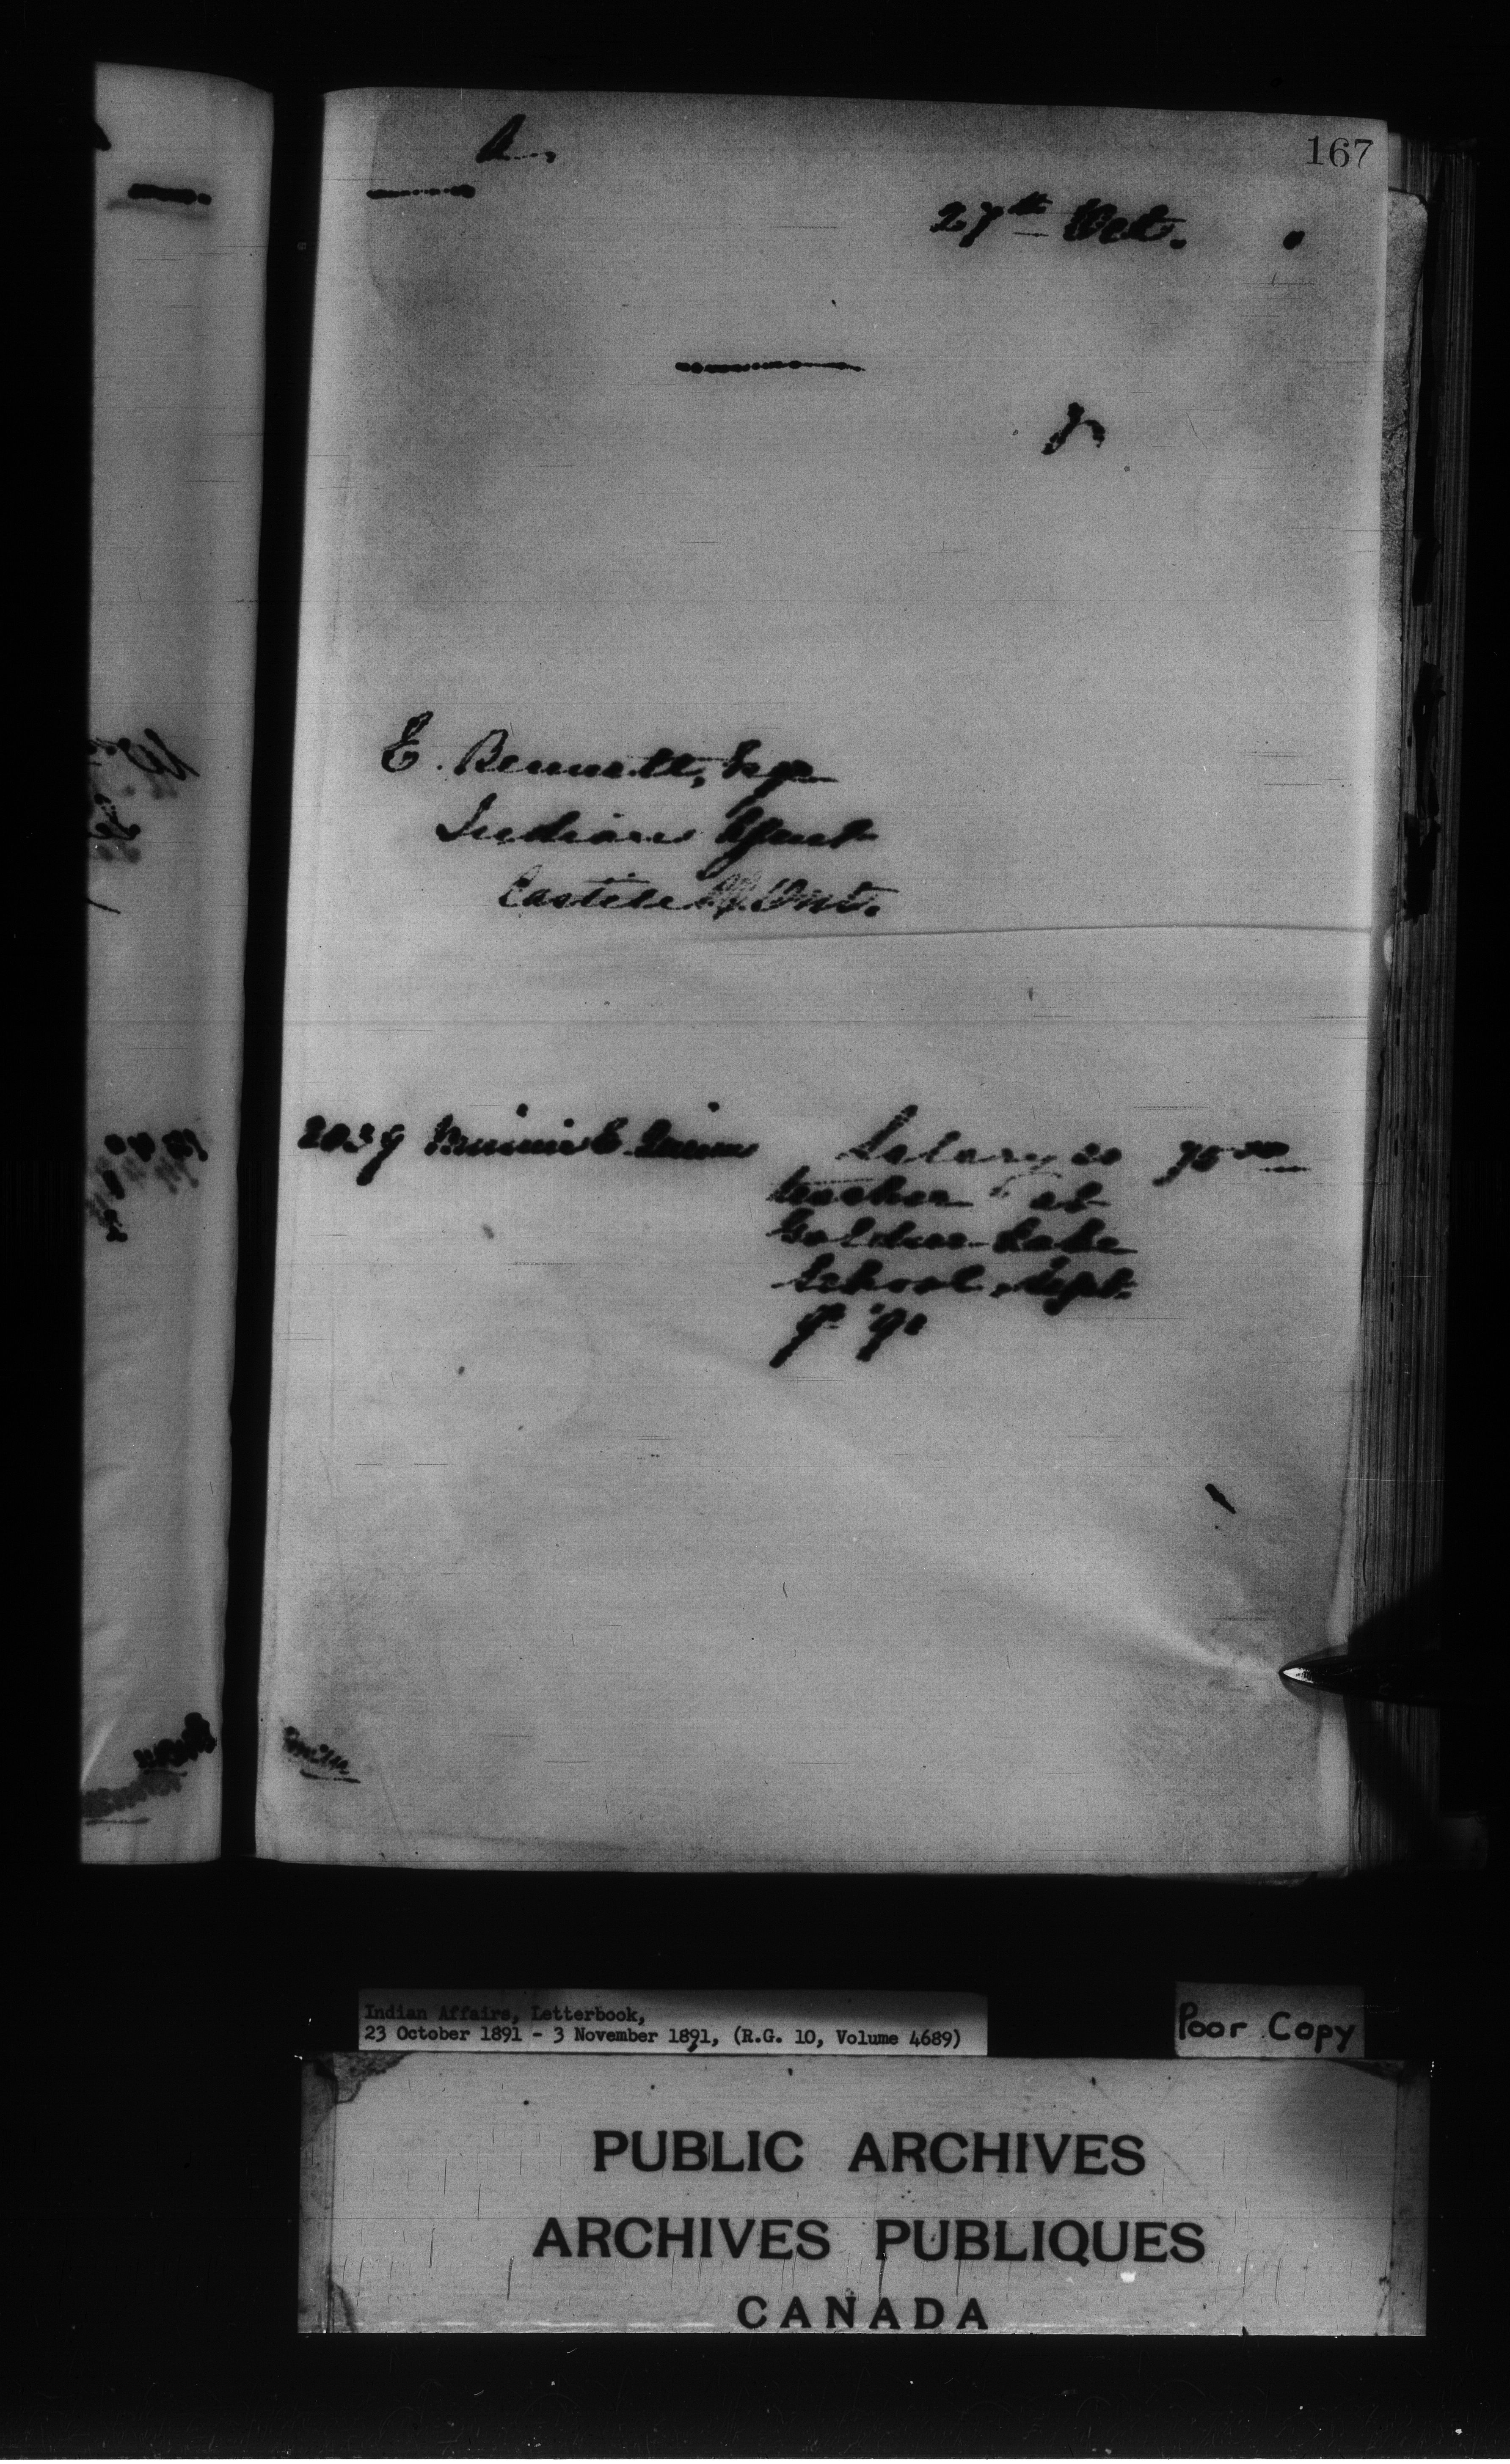 167
A.
27th Oct.
E. Bennett, Esq
Indian Agent
Castile P.O. Ont.
2039 Minnie E. Quinn Salary as 75 00
teacher at
Golden Lake
School, Sept.
qr '91
Indian Affairs, Letterbook,
23 October 1891 - 3 November 1891, (R.G. 10, Volume 4689)
Poor Copy
PUBLIC ARCHIVES
ARCHIVES PUBLIQUES
CANADA